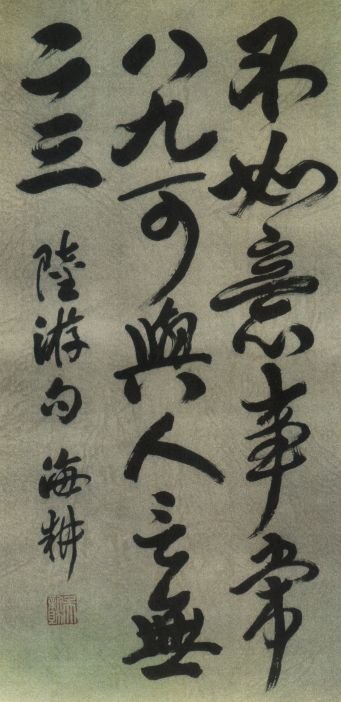 不如意事常
八九可與人言無
二三
陸游句 海耕